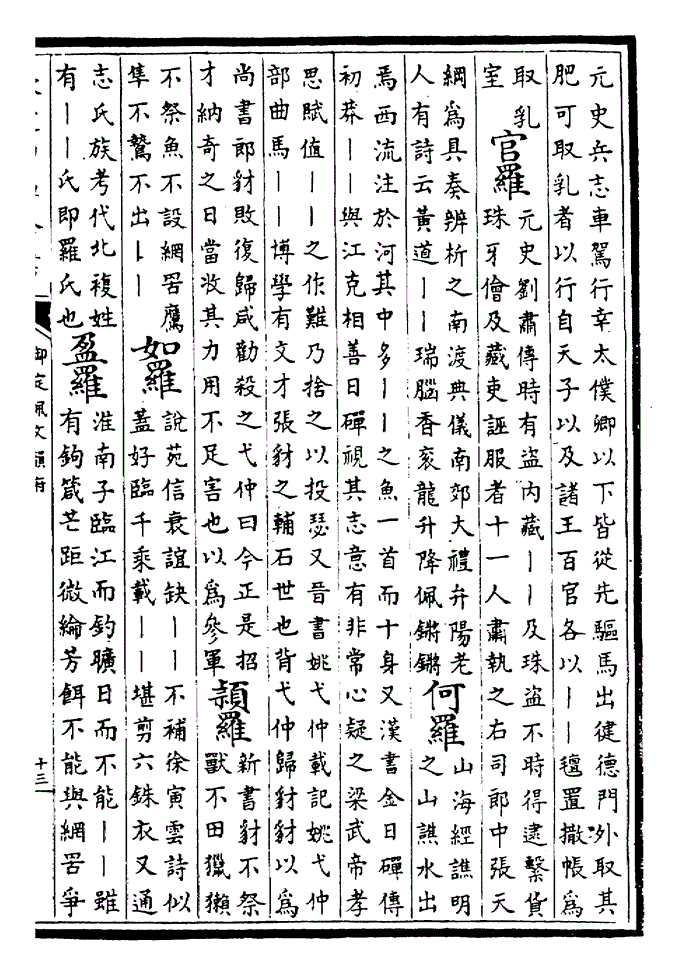 元史兵志車駕行幸太僕卿以下皆從先驅馬出健德門外取其
肥可取乳者以行自天子以及諸王百官各以丨丨氊置撒帳爲
取乳
室
官羅
元史劉肅傳時有盜內藏丨丨及珠盜不時得逮繫貨
珠牙儈及藏吏誣服者十一人肅執之右司郎中張天
綱爲具奏辨析之南渡典儀南郊大禮弁陽老
人有詩云黃道丨丨瑞腦香衮龍升降佩鏘鏘
何羅
山海經譙明
之山譙水出
焉西流注於河其中多丨丨之魚一首而十身又漢書金日磾傳
初莽丨丨與江克相善日磾視其志意有非常心疑之梁武帝孝
思賦值丨丨之作難乃捨之以投瑟又晉書姚弋仲載記姚弋仲
部曲馬丨丨博學有文才張豺之輔石世也背弋仲歸豺豺以爲
尚書郎豺敗復歸咸勸殺之弋仲曰今正是招
才納奇之日當收其力用不足害也以爲參軍
頴羅
新書豺不祭
獸不田獵獺
不祭魚不設網罟鷹
隼不鷙不出丨丨
如羅
說苑信衰誼缺丨丨不補徐寅雲詩似
蓋好臨千乘載丨丨堪剪六銖衣又通
志氏族考代北複姓
有丨丨氏即羅氏也
盈羅
淮南子臨江而釣曠日而不能丨丨雖
有鉤箴芒距微綸芳餌不能與網罟爭
御定佩文韻府
十三